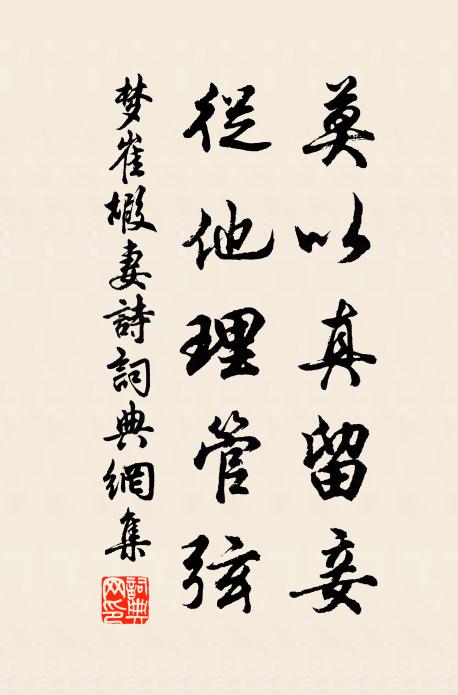 莫以真留妾
從他理管弦
梦崔椴妻詩詞典網集
詞典網印